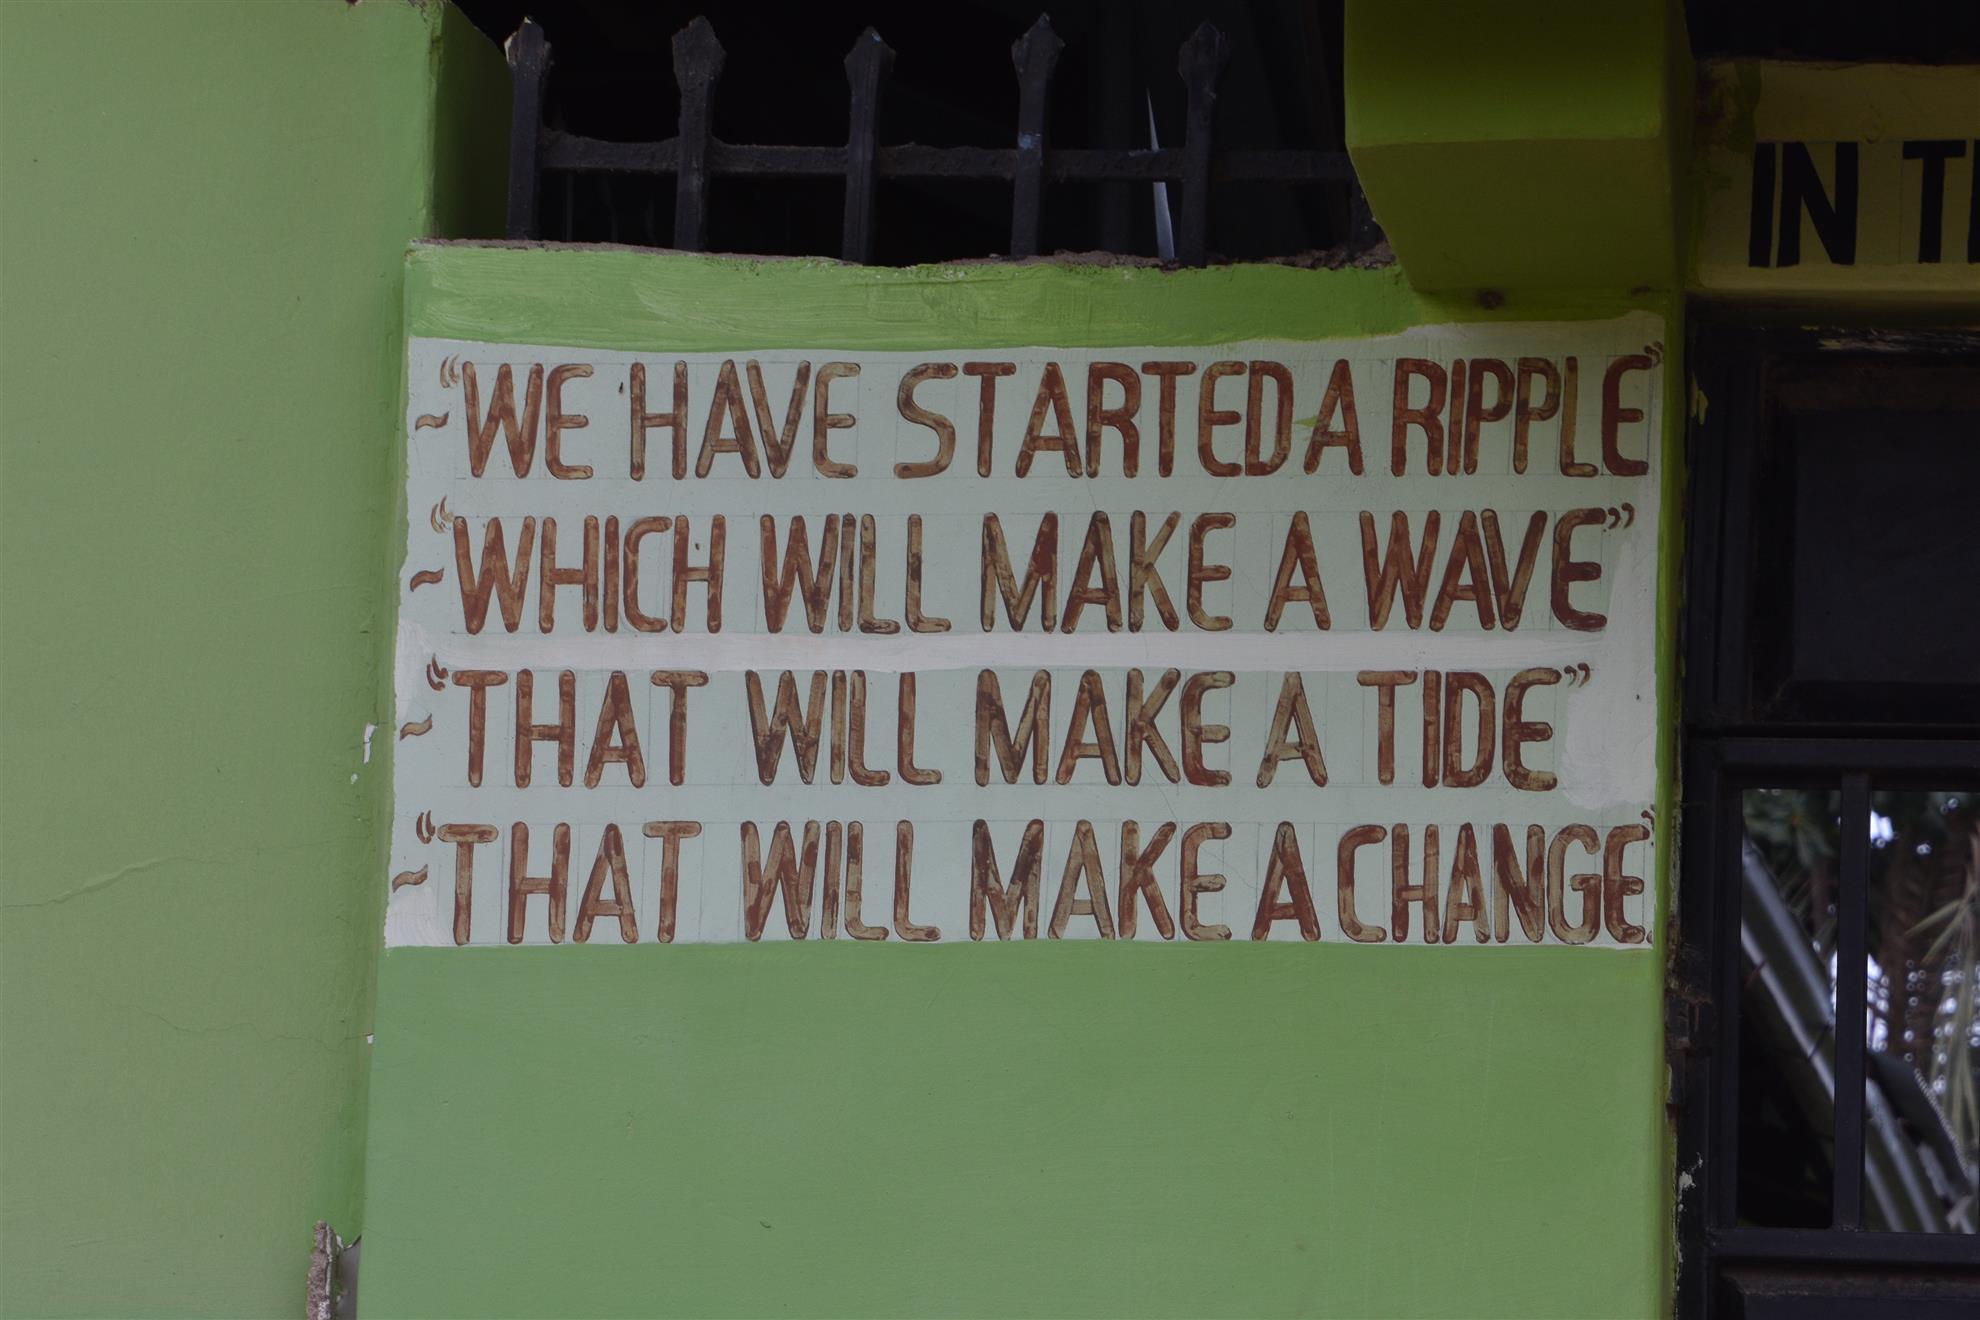 ~“WE HAVE STARTED A RIPPLE”
~“WHICH WILL MAKE A WAVE”
~“THAT WILL MAKE A TIDE”
~“THAT WILL MAKE A CHANGE”
IN